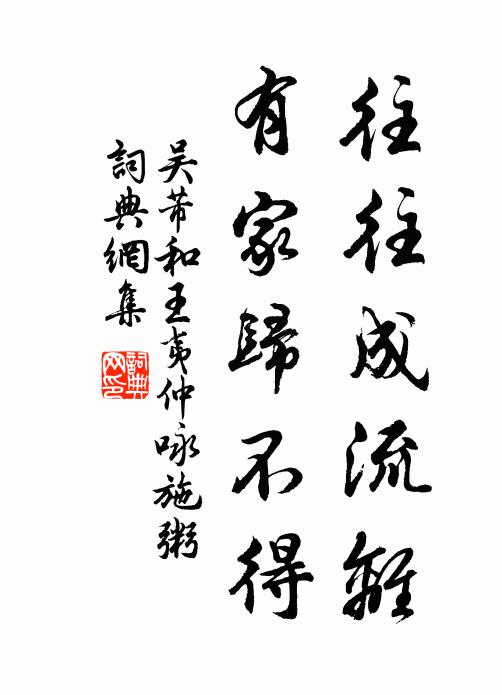 往往成流離
有家歸不得
吳芾和王夷仲咏施粥
詞典網集
詞典網印